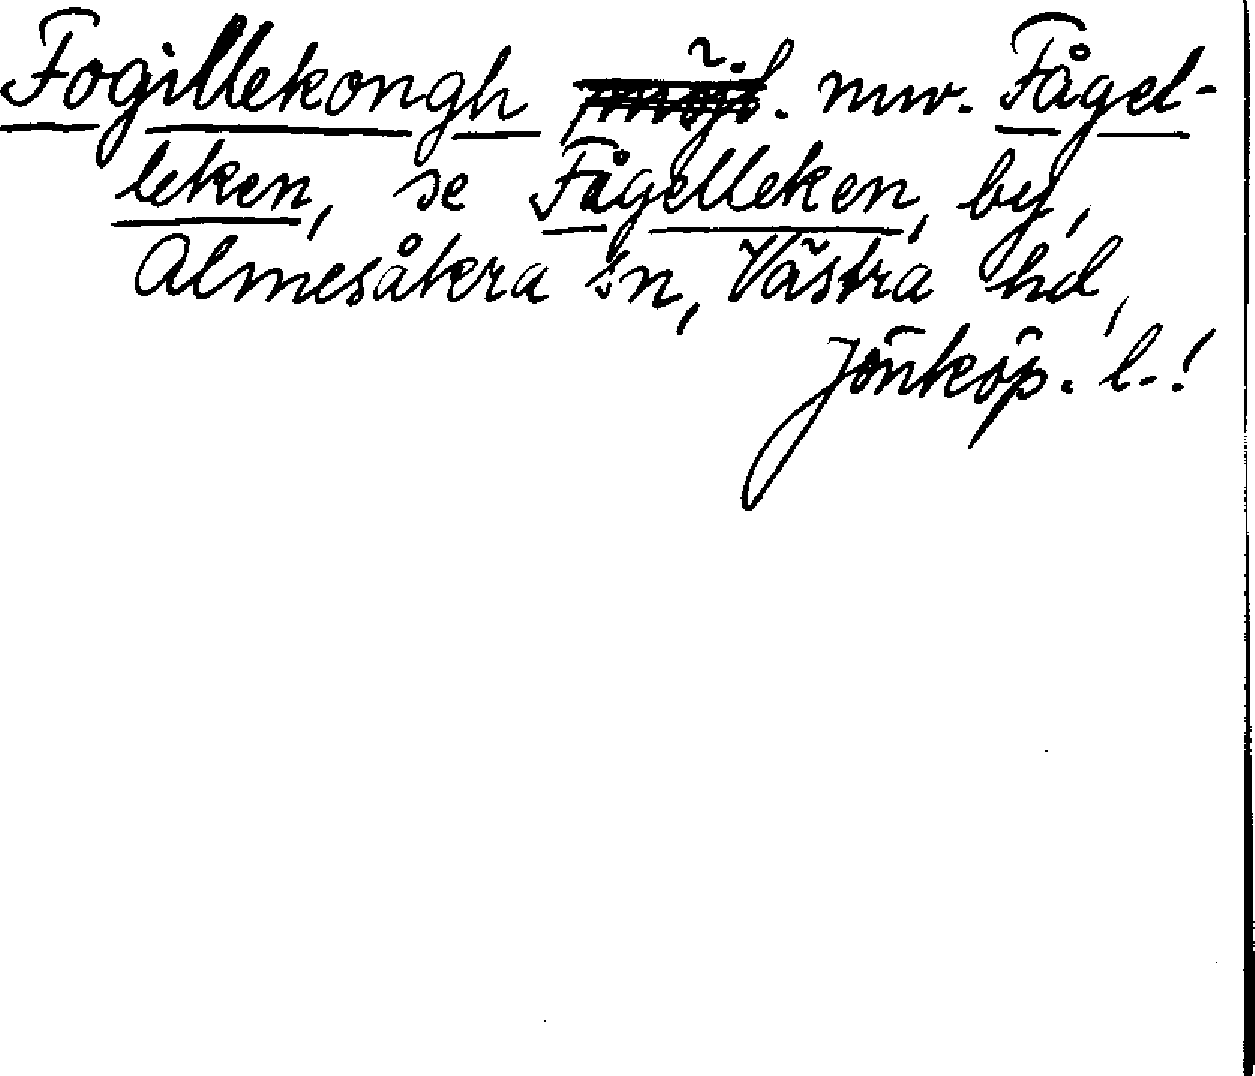 Fogillekongh möjl. nuv. Fågel-
leken, se Fågelleken, by,
Almesåkra sn, Västra hd,
Jönköp. l.!